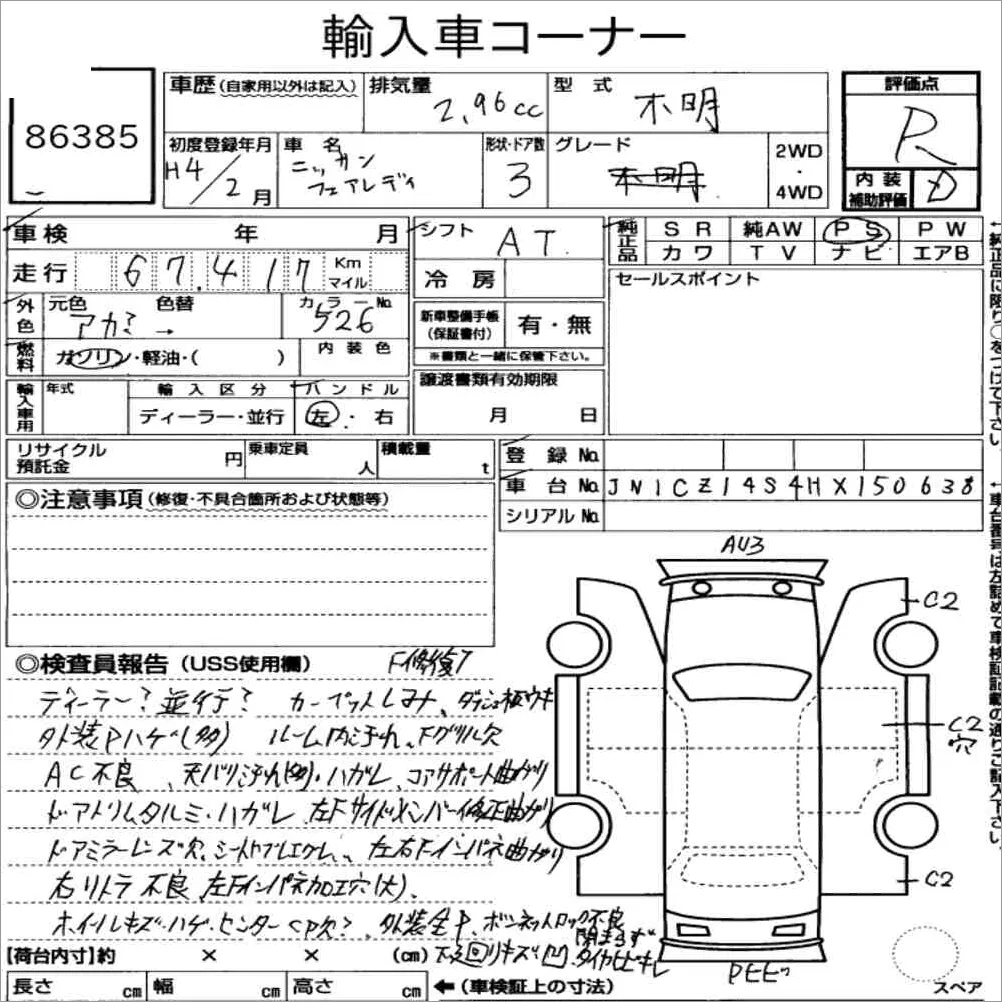 輸入車コーナー
86385
車歴 (自家用以外は記入) 排気量 2,96cc 型式 不明 評価点 R
初度登録年月 H4/2月 車名 ニッサン フェアレディ 形状・ドア数 3 グレード 不明 2WD・4WD 内装補助評価 D
車検 年 月 シフト AT. 純正品 SR 純AW PS PW
カワ TV ナビ エアB
走行 67.417 Km マイル 冷房 セールスポイント
外色 元色 アカ? → 色替 カラーNo. 526 新車整備手帳 (保証書付) 有・無
※書類と一緒に保管下さい。
燃料 ガソリン・軽油・( ) 内装色
輸入車用 年式 輸入区分 ディーラー・並行 ハンドル 左・右 譲渡書類有効期限 月 日
リサイクル預託金 円 乗車定員 人 積載量 t 登録No.
車台No. JN1CZ14S4HX150638
シリアルNo.
←純正品に限り○をつけて下さい。
←車台番号は左詰めで車検証記載の通りご記入下さい。
◎注意事項 (修復・不具合箇所および状態等)
AU3
C2
C2
穴
C2
◎検査員報告 (USS使用欄) F修復?
ディーラー? 並行? カープットレスマナ、ダッシュ板ウキ
外装Pハゲ(多) ルーム内ヨゴれ、Fグリル欠
AC不良、天バリヨゴれ(多)・ハガレ、コアサポート曲ガリ
ドアトリムタルミ・ハガレ、左Fサイドメンバー修正曲ガリ
ドアミラーレンズ欠、シート 、左右Fインパネ曲ガリ
右リトラ不良 左Fインパネ加工穴(大)、
ホイールキズ・ハゲ・センターCP欠?、外装全P、ボンネットロック不良
閉まらず
下廻リキズ凹、タイヤヒビキレ
【荷台内寸】約 × × (cm)
長さ cm 幅 cm 高さ cm ←(車検証上の寸法)
スペア